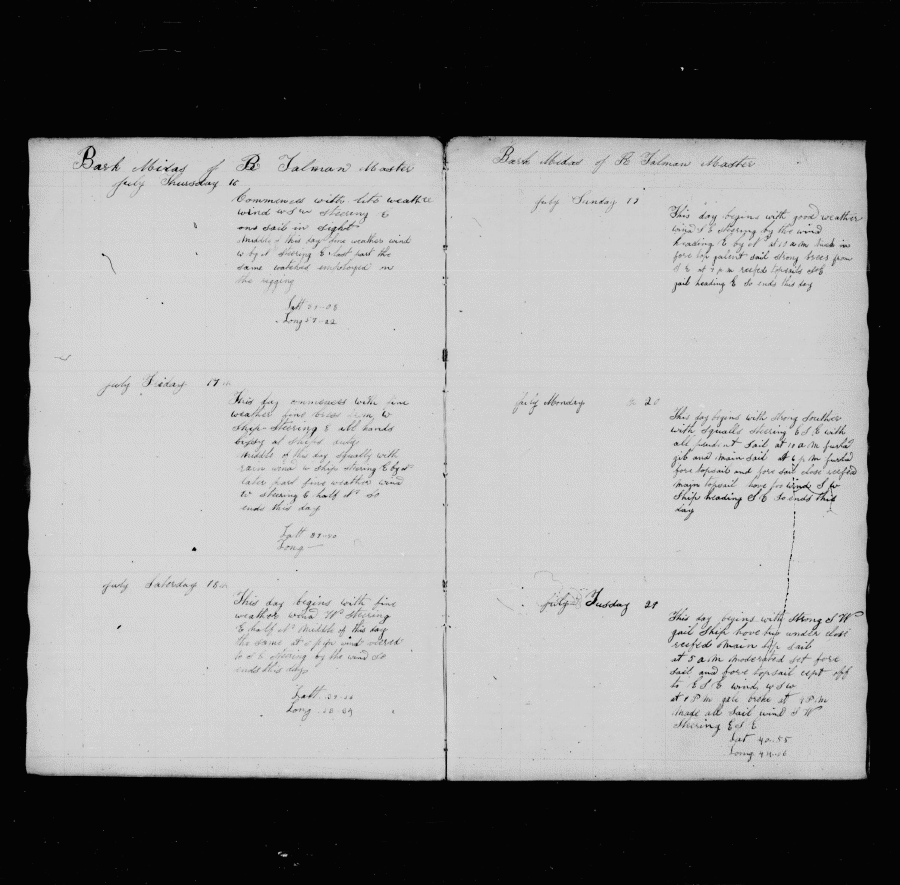 Bark Midas of R Talman Master
July Thursday 16
Commences with lite weather
wind WSW Steering E
one sail in Sight
Middle of this day fine weather wind
W by N Steering E last part the
same watches employed in
the rigging
Latt 39-08
Long 57-22
July Friday 17th
This day commences with fine
weather fine brees from W
Ship Steering E all hands
bysy at Ships duty
Middle of this day Squally with
rain wind W Ship Stering E by N
later part fine weather wind
W steering E half N So
ends this day
Latt 39-20
Long
July Satorday 18th
This day begins with fine
weather wind W Steering
E half N Middle of this day
the same at 6 pm wind
to S E Steering by the wind So
ends this day
Latt
Long
Bark Midas of R Talman Master
July Sunday 19
This day begins with good weather
wind S E Steering by the wind
heading E by N at 10 a m took in
fore top galent sail strong brees from
S E at 7 p m reefed topsails
gail heading E So ends this day
July Monday 20
This day begins with Strong Souther
with Squalls Steering E S E with
all prudent Sail at 10 a M furled
gib and main sail at 6 p M furled
fore topsail and fore sail close reefed
main topsail hove too wind S W
Ship heading S E So ends this
day
July Tusday 21
This day begins with Strong S W
gail Ship hove too under close
reefed main top sail
at 5 a M moderated set fore
sail and fore topsail cept off
to E S E wind W S W
at 1 P M gale broke at 4 P M
Made all Sail wind S W
Steering E S E
Lat 40-55
Long 44-16